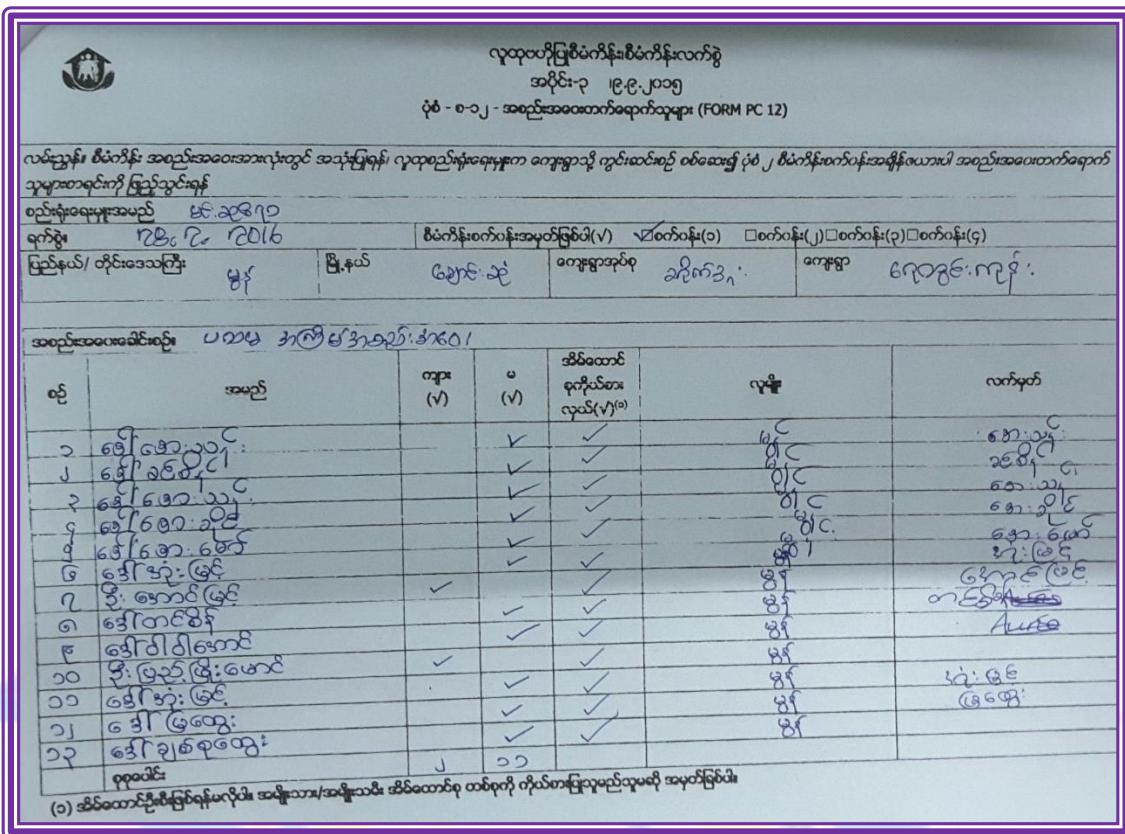 လူထုဗဟိုပြုစီမံကိန်း၊စီမံကိန်းလက်စွဲ
အပိုင်း-၃ ၊၉.၉.၂၀၁၅
ပုံစံ - စ-၁၂ - အစည်းအဝေးတက်ရောက်သူများ (FORM PC 12)
လမ်းညွှန်။ စီမံကိန်း အစည်းအဝေးအားလုံးတွင် အသုံးပြုရန်၊ လူထုစည်းရုံးရေးမှူးက ကျေးရွာသို့ ကွင်းဆင်းစဉ် စစ်ဆေး၍ ပုံစံ ၂ စီမံကိန်းစက်ဝန်းအချိန်ဇယားပါ အစည်းအဝေးတက်ရောက်
သူများစာရင်းကို ဖြည့်သွင်းရန်
စည်းရုံးရေးမှူးအမည်
ရက်စွဲ။ 28. 2. 2016 စီမံကိန်းစက်ဝန်းအမှတ်ဖြစ်ပါ(√) ☑စက်ဝန်း(၁) □စက်ဝန်း(၂)□စက်ဝန်း(၃)□စက်ဝန်း(၄)
ပြည်နယ်/ တိုင်းဒေသကြီး မွန် မြို့နယ် ချောင်းဆုံ ကျေးရွာအုပ်စု ကျေးရွာ ရေတွင်းကုန်း
အစည်းအဝေးခေါင်းစဉ်။ ပထမ အကြိမ်အစည်းအဝေး
စဉ် အမည် ကျား (√) မ (√) အိမ်ထောင်စုကိုယ်စားလှယ်(√)(၁) လူမျိုး လက်မှတ်
၁ ဒေါ် √ √
၂ ဒေါ်ခင်စိန် √ √ မွန် ခင်စိန်
၃ ဒေါ်အေးသန်း √ √ မွန် အေးသန်း
၄ √ √ မွန်
၅ √ √ မွန်
၆ ဒေါ်အုံးမြင့် √ √ မွန် အုံးမြင့်
၇ ဦးအောင်မြင့် √ √ မွန် အောင်မြင့်
၈ ဒေါ်တင်စိန် √ √ မွန်
၉ ဒေါ်ဝါဝါအောင် √ √ မွန်
၁၀ ဦးပြည့်ဖြိုးမောင် √ √ မွန်
၁၁ ဒေါ်အုံးမြင့် √ √ မွန် အုံးမြင့်
၁၂ ဒေါ်မြထွေး √ √ မွန် မြထွေး
၁၃ ဒေါ်ချစ်စုထွေး √ √ မွန်
စုစုပေါင်း ၂ ၁၁
(၁) အိမ်ထောင်ဦးစီးဖြစ်ရန်မလိုပါ။ အမျိုးသား/အမျိုးသမီး အိမ်ထောင်စု တစ်စုကို ကိုယ်စားပြုသူမည်သူမဆို အမှတ်ခြစ်ပါ။